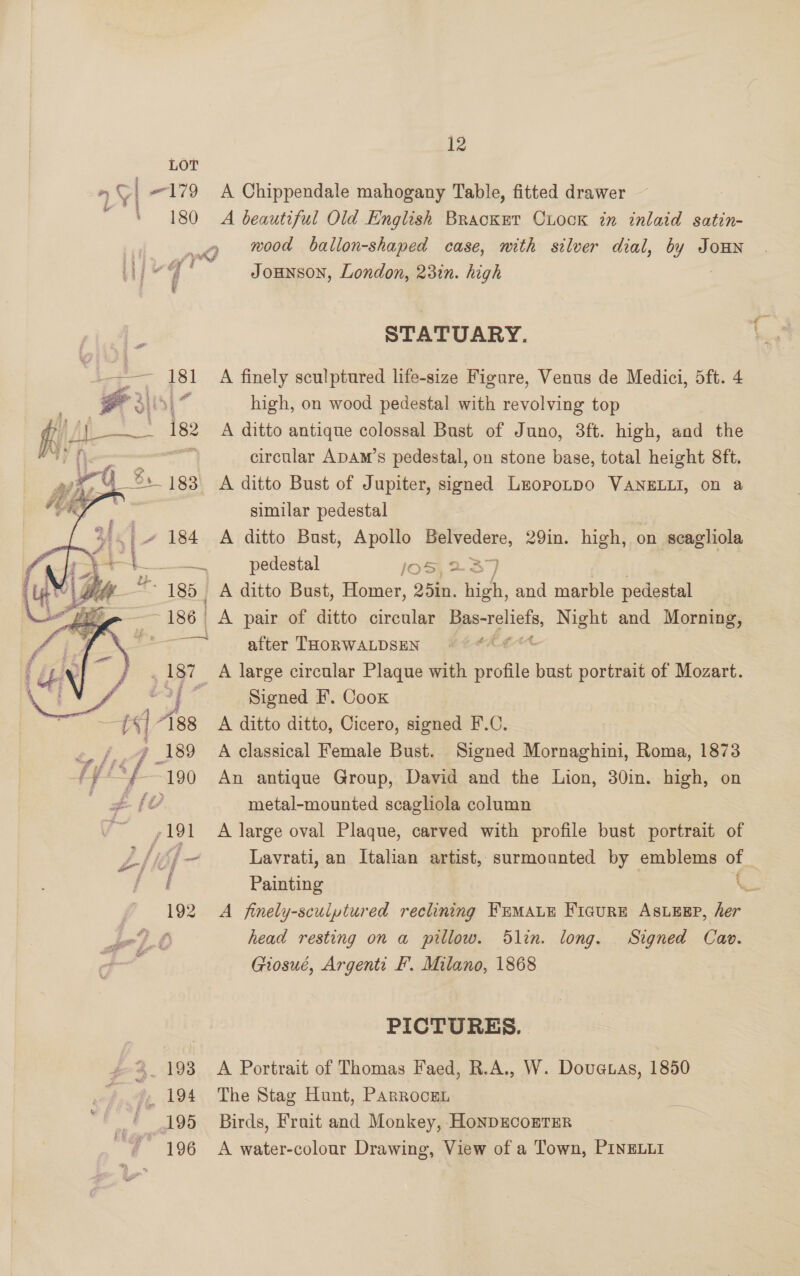 12
LOT
179 A Chippendale mahogany Table, fitted drawer
180 A beautiful Old English Bracket Clock in inlaid satin-
wood ballon-shaped case, with silver dial, by John
Johnson, London, 23in. high
STATUARY.
181 A finely sculptured life-size Figure, Venus de Medici, 5ft. 4
high, on wood pedestal with revolving top
182 A ditto antique colossal Bust of Juno, 3ft. high, and the
circular Adam's pedestal, on stone base, total height 8ft.
183 A ditto Bust of Jupiter, signed Leopoldo Vanelli, on a
similar pedestal
184 A ditto Bust, Apollo Belvedere, 29in. high, on scagliola
pedestal
185 A ditto Bust, Homer, 25in. high, and marble pedestal
186 A pair of ditto circular Bas-reliefs, Night and Morning,
after Thorwaldsen
187 A large circular Plaque with profile bust portrait of Mozart.
Signed F. Cook
188 A ditto ditto, Cicero, signed F.C.
189 A classical Female Bust. Signed Mornaghini, Roma, 1873
190 An antique Group, David and the Lion, 30in. high, on
metal-mounted scagliola column
191 A large oval Plaque, carved with profile bust portrait of
Lavrati, an Italian artist, surmounted by emblems of
Painting
192 A finely-sculptured reclining Female Figure Asleep, her
head resting on a pillow. 51in. long. Signed Cav.
Giosué, Argenti F. Milano, 1868
PICTURES.
193 A Portrait of Thomas Faed, R.A., W. Douglas, 1850
194 The Stag Hunt, Parrocel
195 Birds, Fruit and Monkey, Hondecoeter
196 A water-colour Drawing, View of a Town, Pinelli